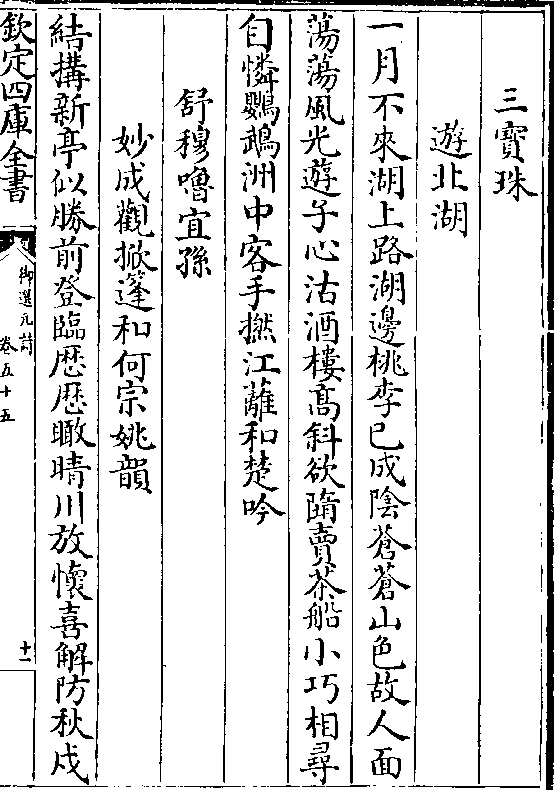 三寳珠
遊北湖
一月不來湖上路湖邊桃李已成陰蒼蒼山色故人面
蕩蕩風光遊子心沽酒樓髙斜欲隋賣茶船小巧相尋
自憐鸚鵡洲中客手撚江蘺和楚吟
舒穆嚕宜孫
妙成觀掀篷和何宗姚韻
結搆新亭似勝前登臨歴歴瞰晴川放懷喜解防秋戍
欽定四庫全書
御選元詩
卷五十五
十一